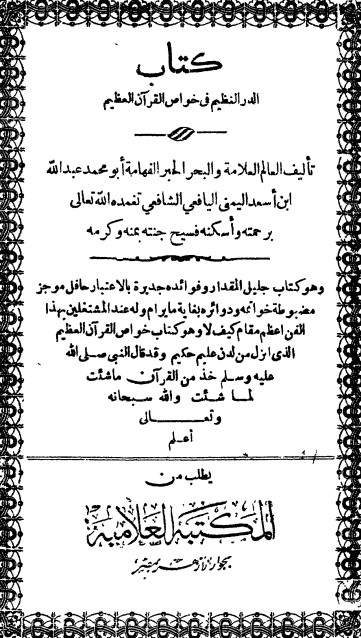 كتاب
الدر النظيم فى خواص القرآن العظيم
تأليف العالم العلامة والبحر الحبر الفهامة أبو محمد عبدالله
ابن أسعد اليمنى اليافعي الشافعي تغمده الله تعالى
برحمته وأسكنه فسيح جنته بمنه وكرمه
وهو كتاب جليل المقدار وفوائده جديرة بالاعتبار حافل موجز
مضبوطة خواتمه ودوائره بغاية مايرام وله عند المشتغلين بهذا
الفن اعظم مقام كيف لا وهو كتاب خواص القرآن العظيم
الذى انزل من لدن عليم حكيم وقد قال النبى صلى الله
عليه وسلم خذ من القرآن ماشئت
لما شئت والله سبحانه
وتعالى
أعلم
يطلب من
المكتبة العلامية
بجوار الأزهر بمصر